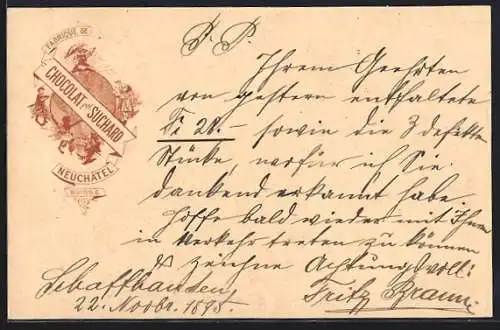 FABRIQUE DE
CHOCOLAT ph. SUCHARD
NEUCHÂTEL
SUISSE
P. P.
Ihrem Geehrten
von gestern entfaltete
20.- sowie die 3 defekte
Stücke, wofür ich Sie
dankend erkannt habe.
Hoffe bald wieder mit Ihnen
in Verkehr treten zu können
& zeichne Achtungsvoll:
Schaffhausen Fritz Braun
22. Novbr. 1895.